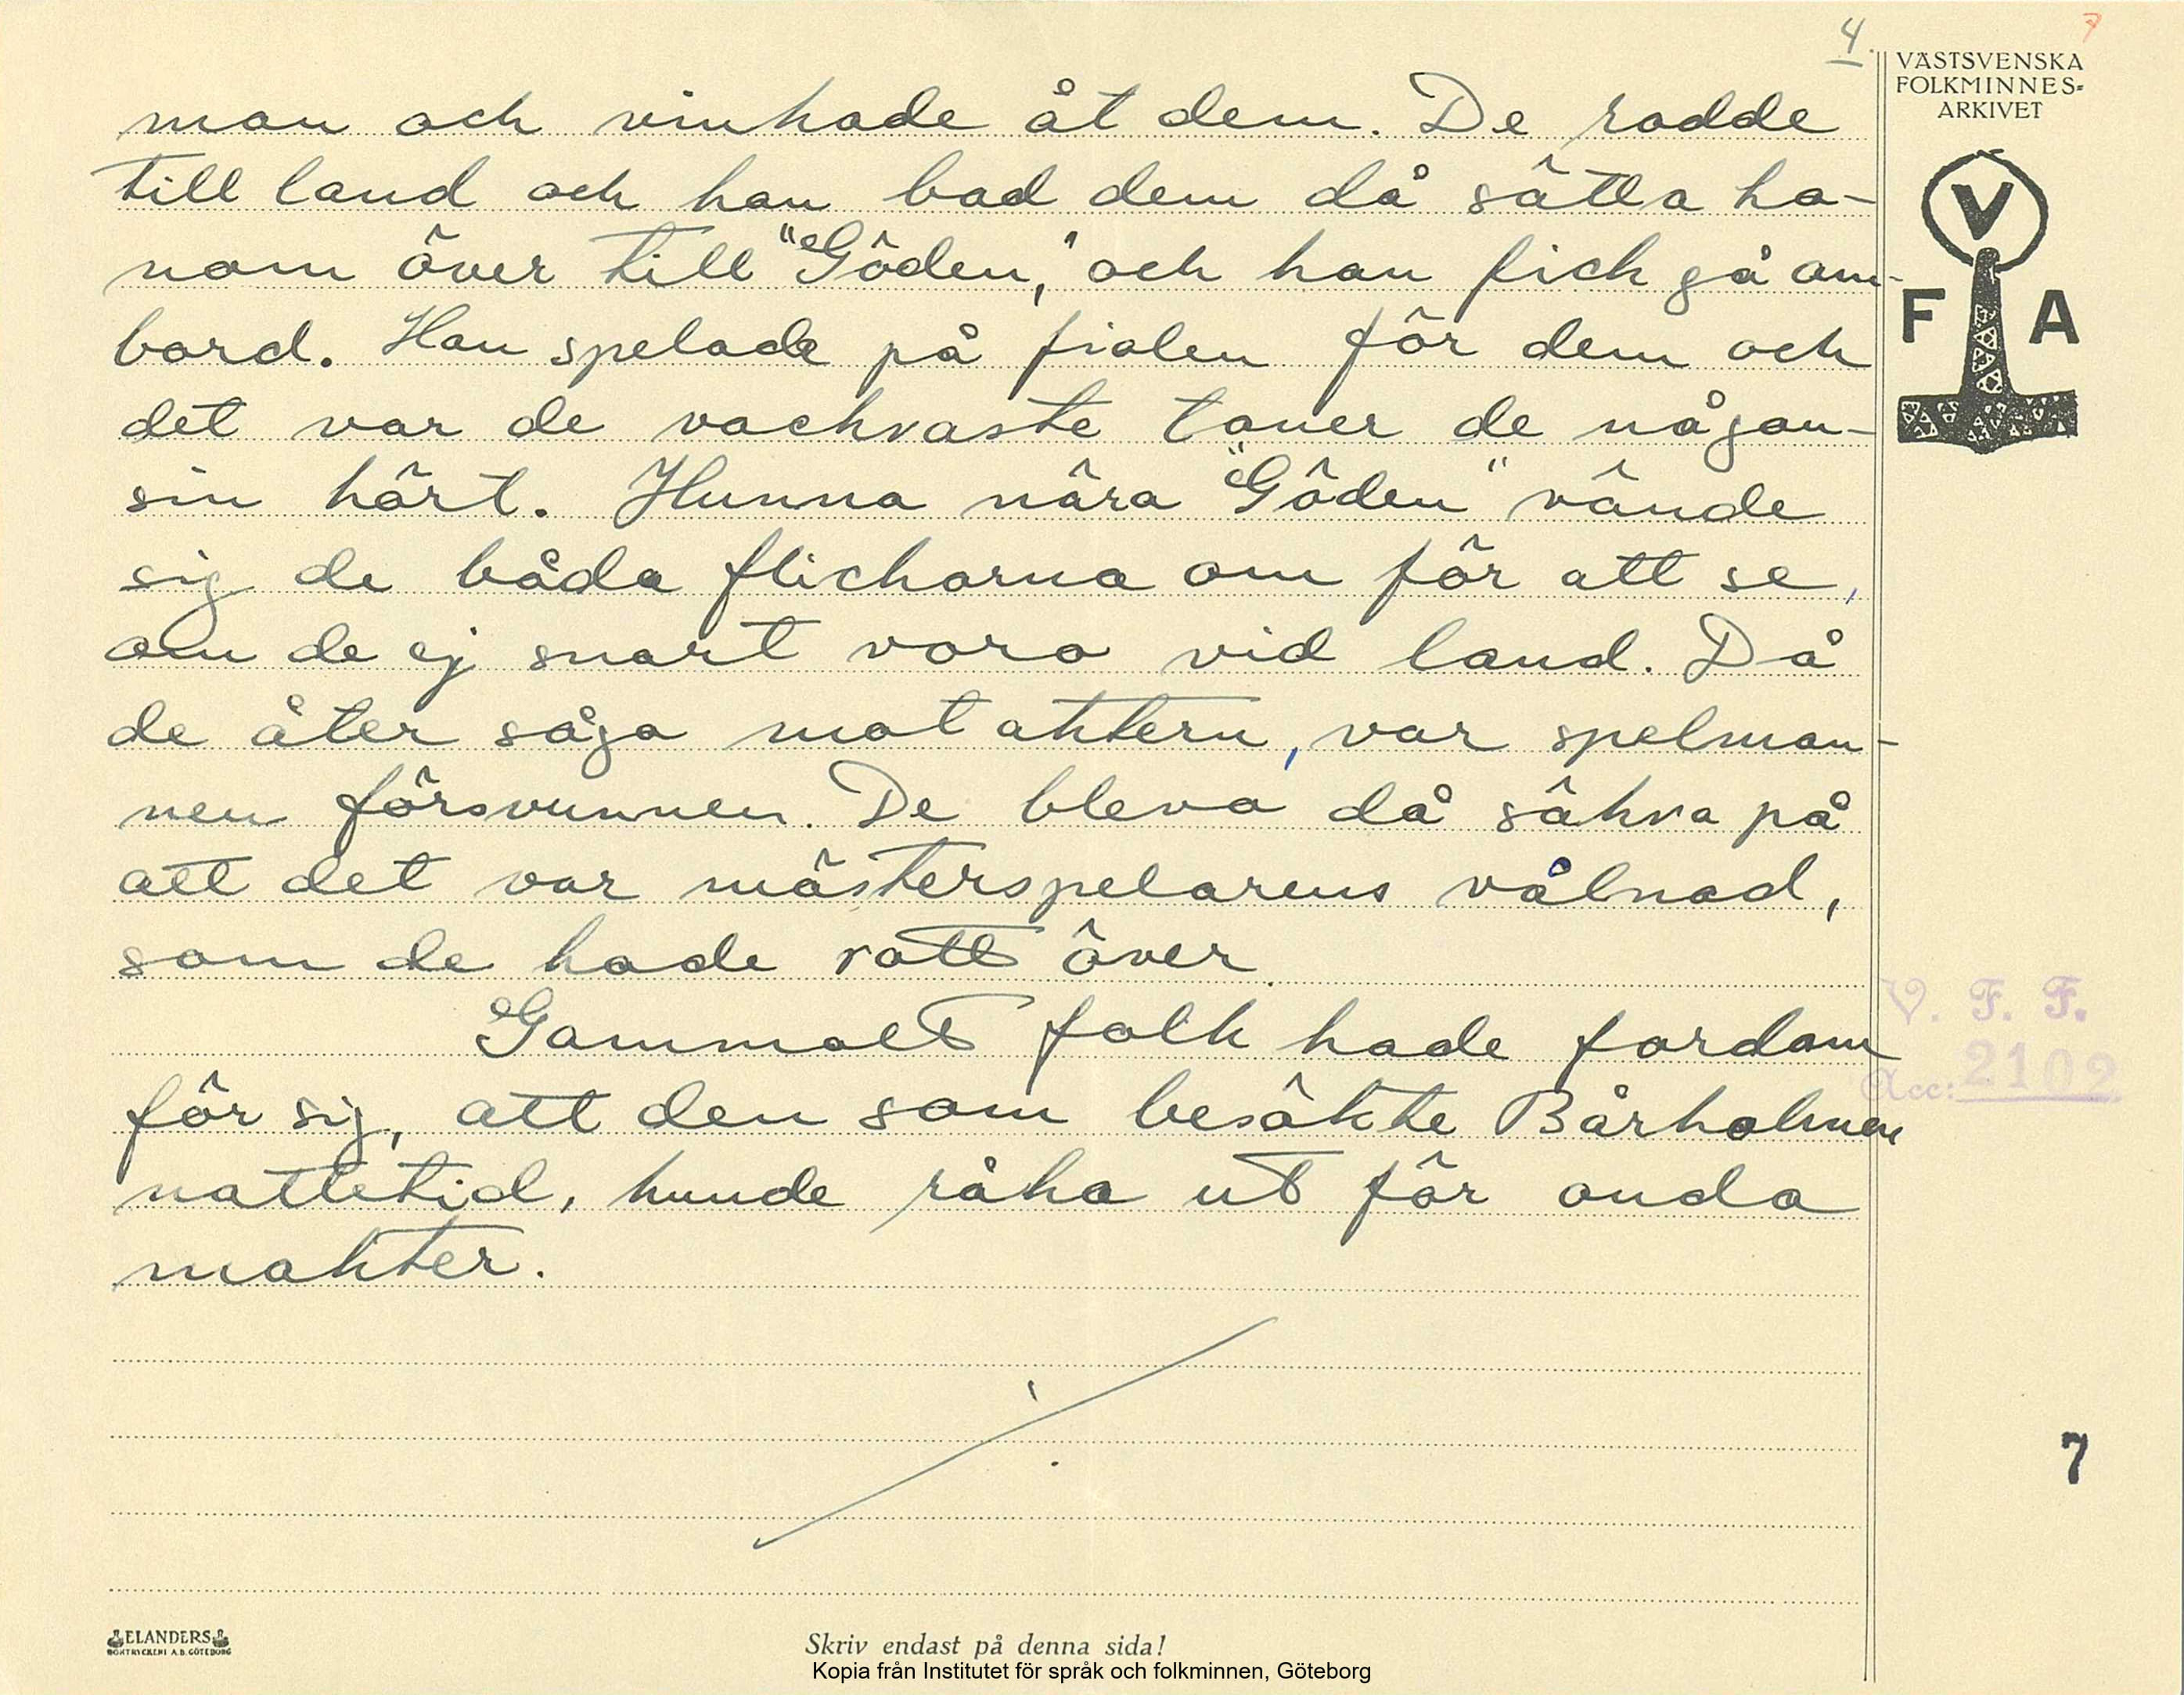 4.
7
VÄSTSVENSKA
FOLKMINNES-
ARKIVET
V
F A
man och vinkade åt dem. De rodde
till land och han bad dem då sätta ho-
nom över till "Göden," och han fick gå om-
bord. Han spelade på fiolen för dem och
det var de vackraste toner de någon-
sin hört. Kunna nära "Göden" vände
sig de båda flickorna om för att se,
om de ej snart voro vid land. Då
de åter sågo mot aktern, var spelman-
nen försvunnen. De blevo då säkra på
att det var mästerspelarens vålnad,
som de hade rott över.
Gammalt folk hade fordom
för sig, att den som besökte Bårholmen
nattetid, kunde råka ut för onda
makter.
V. F. F.
Acc: 2102
7
ELANDERS
BOKTRYCKERI A.B. GÖTEBORG
Skriv endast på denna sida!
Kopia från Institutet för språk och folkminnen, Göteborg